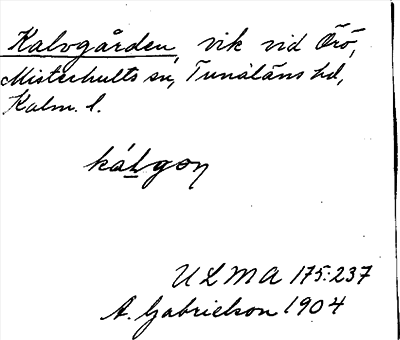 Kalvgården, vik vid Örö,
Misterhults sn, Tunaläns hd,
Kalm. l.
ULMA 175:237
A. Gabrielson 1904